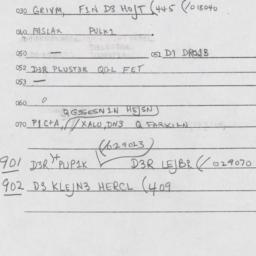 030 GRIVM, F1N D3 HOJT (445 (/018040
040 MSLAK PULK1
050 — 051 D1 DROJB
052 D3R PLUST3R QGL FET
053 —
060 0
QGSGESN1N HEJSN)
070 P1C+A, XALU, DN3 Q FARKILN
(629023)
901 D3R PUP1K D3R LEJB2 (/029070
902 D3 KLEJN3 HERCL (409